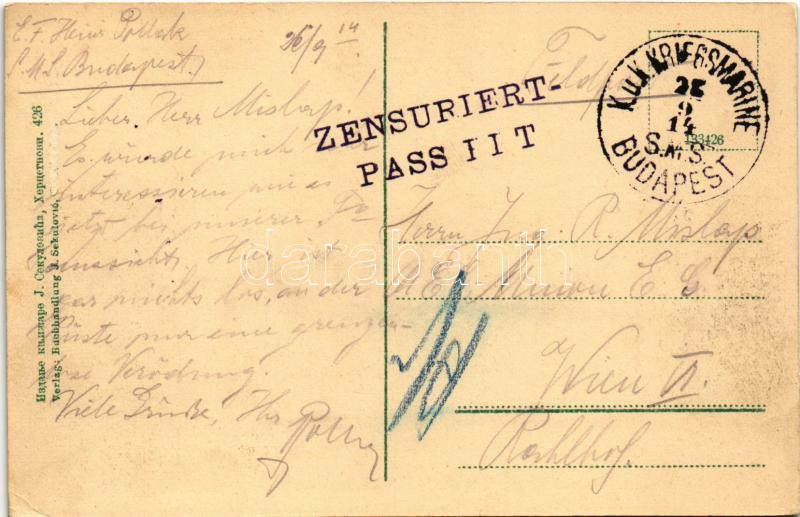 E. F. Heinr Pollak
S.M.S. Budapest.
26/9 14.
Lieber Herr Mislap!
Es würde mich
interessieren
jetzt bei unserer
aussieht. Hier ist
gar nichts los, an der
Küste nur eine grenzen-
lose Verödung.
Viele Grüße, Ihr
ZENSURIERT-
PASSIIT
K.u.K. KRIEGSMARINE
25
9
14
S.M.S.
BUDAPEST
133426
Feldp
Herrn Ing. R. Mislap
A.E.G. Union E. G.
Wien VI.
Rahlhof.
Издање књижаре Ј. Секуловића, Херцегнови. 426
Verlag: Buchhandlung J. Sekulović,
darabanth